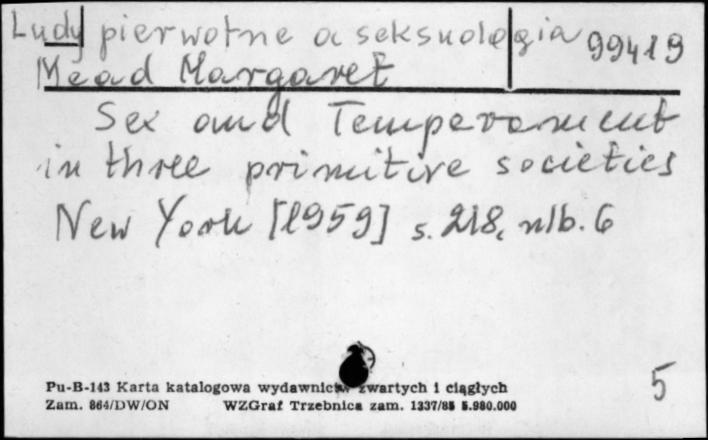 Ludy pierwotne a seksuologia 99419
Mead Margaret
Sex and Temperament
in three primitive societies
New York [1959] s. 218, nlb. 6
Pu-B-143 Karta katalogowa wydawnictw zwartych i ciągłych
Zam. 864/DW/ON WZGraf Trzebnica zam. 1337/85 5.980.000
5